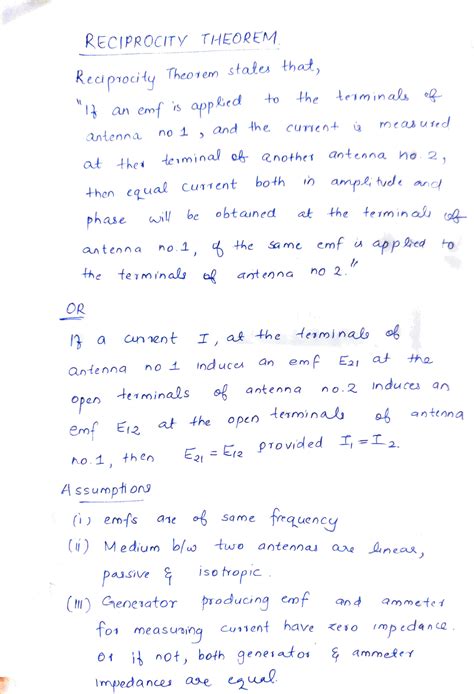 RECIPROCITY THEOREM.
Reciprocity Theorem states that,
"If an emf is applied to the terminals of
antenna no 1, and the current is measured
at ther terminal of another antenna no. 2,
then equal current both in amplitude and
phase will be obtained at the terminals of
antenna no.1, if the same emf is applied to
the terminals of antenna no 2."
OR
If a current I, at the terminals of
antenna no 1 induces an emf E21 at the
open terminals of antenna no.2 induces an
emf E12 at the open terminals of antenna
no.1, then E21 = E12 provided I1 = I2.
Assumptions
(i) emfs are of same frequency
(ii) Medium b/w two antennas are linear,
passive & isotropic.
(iii) Generator producing emf and ammeter
for measuring current have zero impedance.
or if not, both generator & ammeter
impedances are equal.